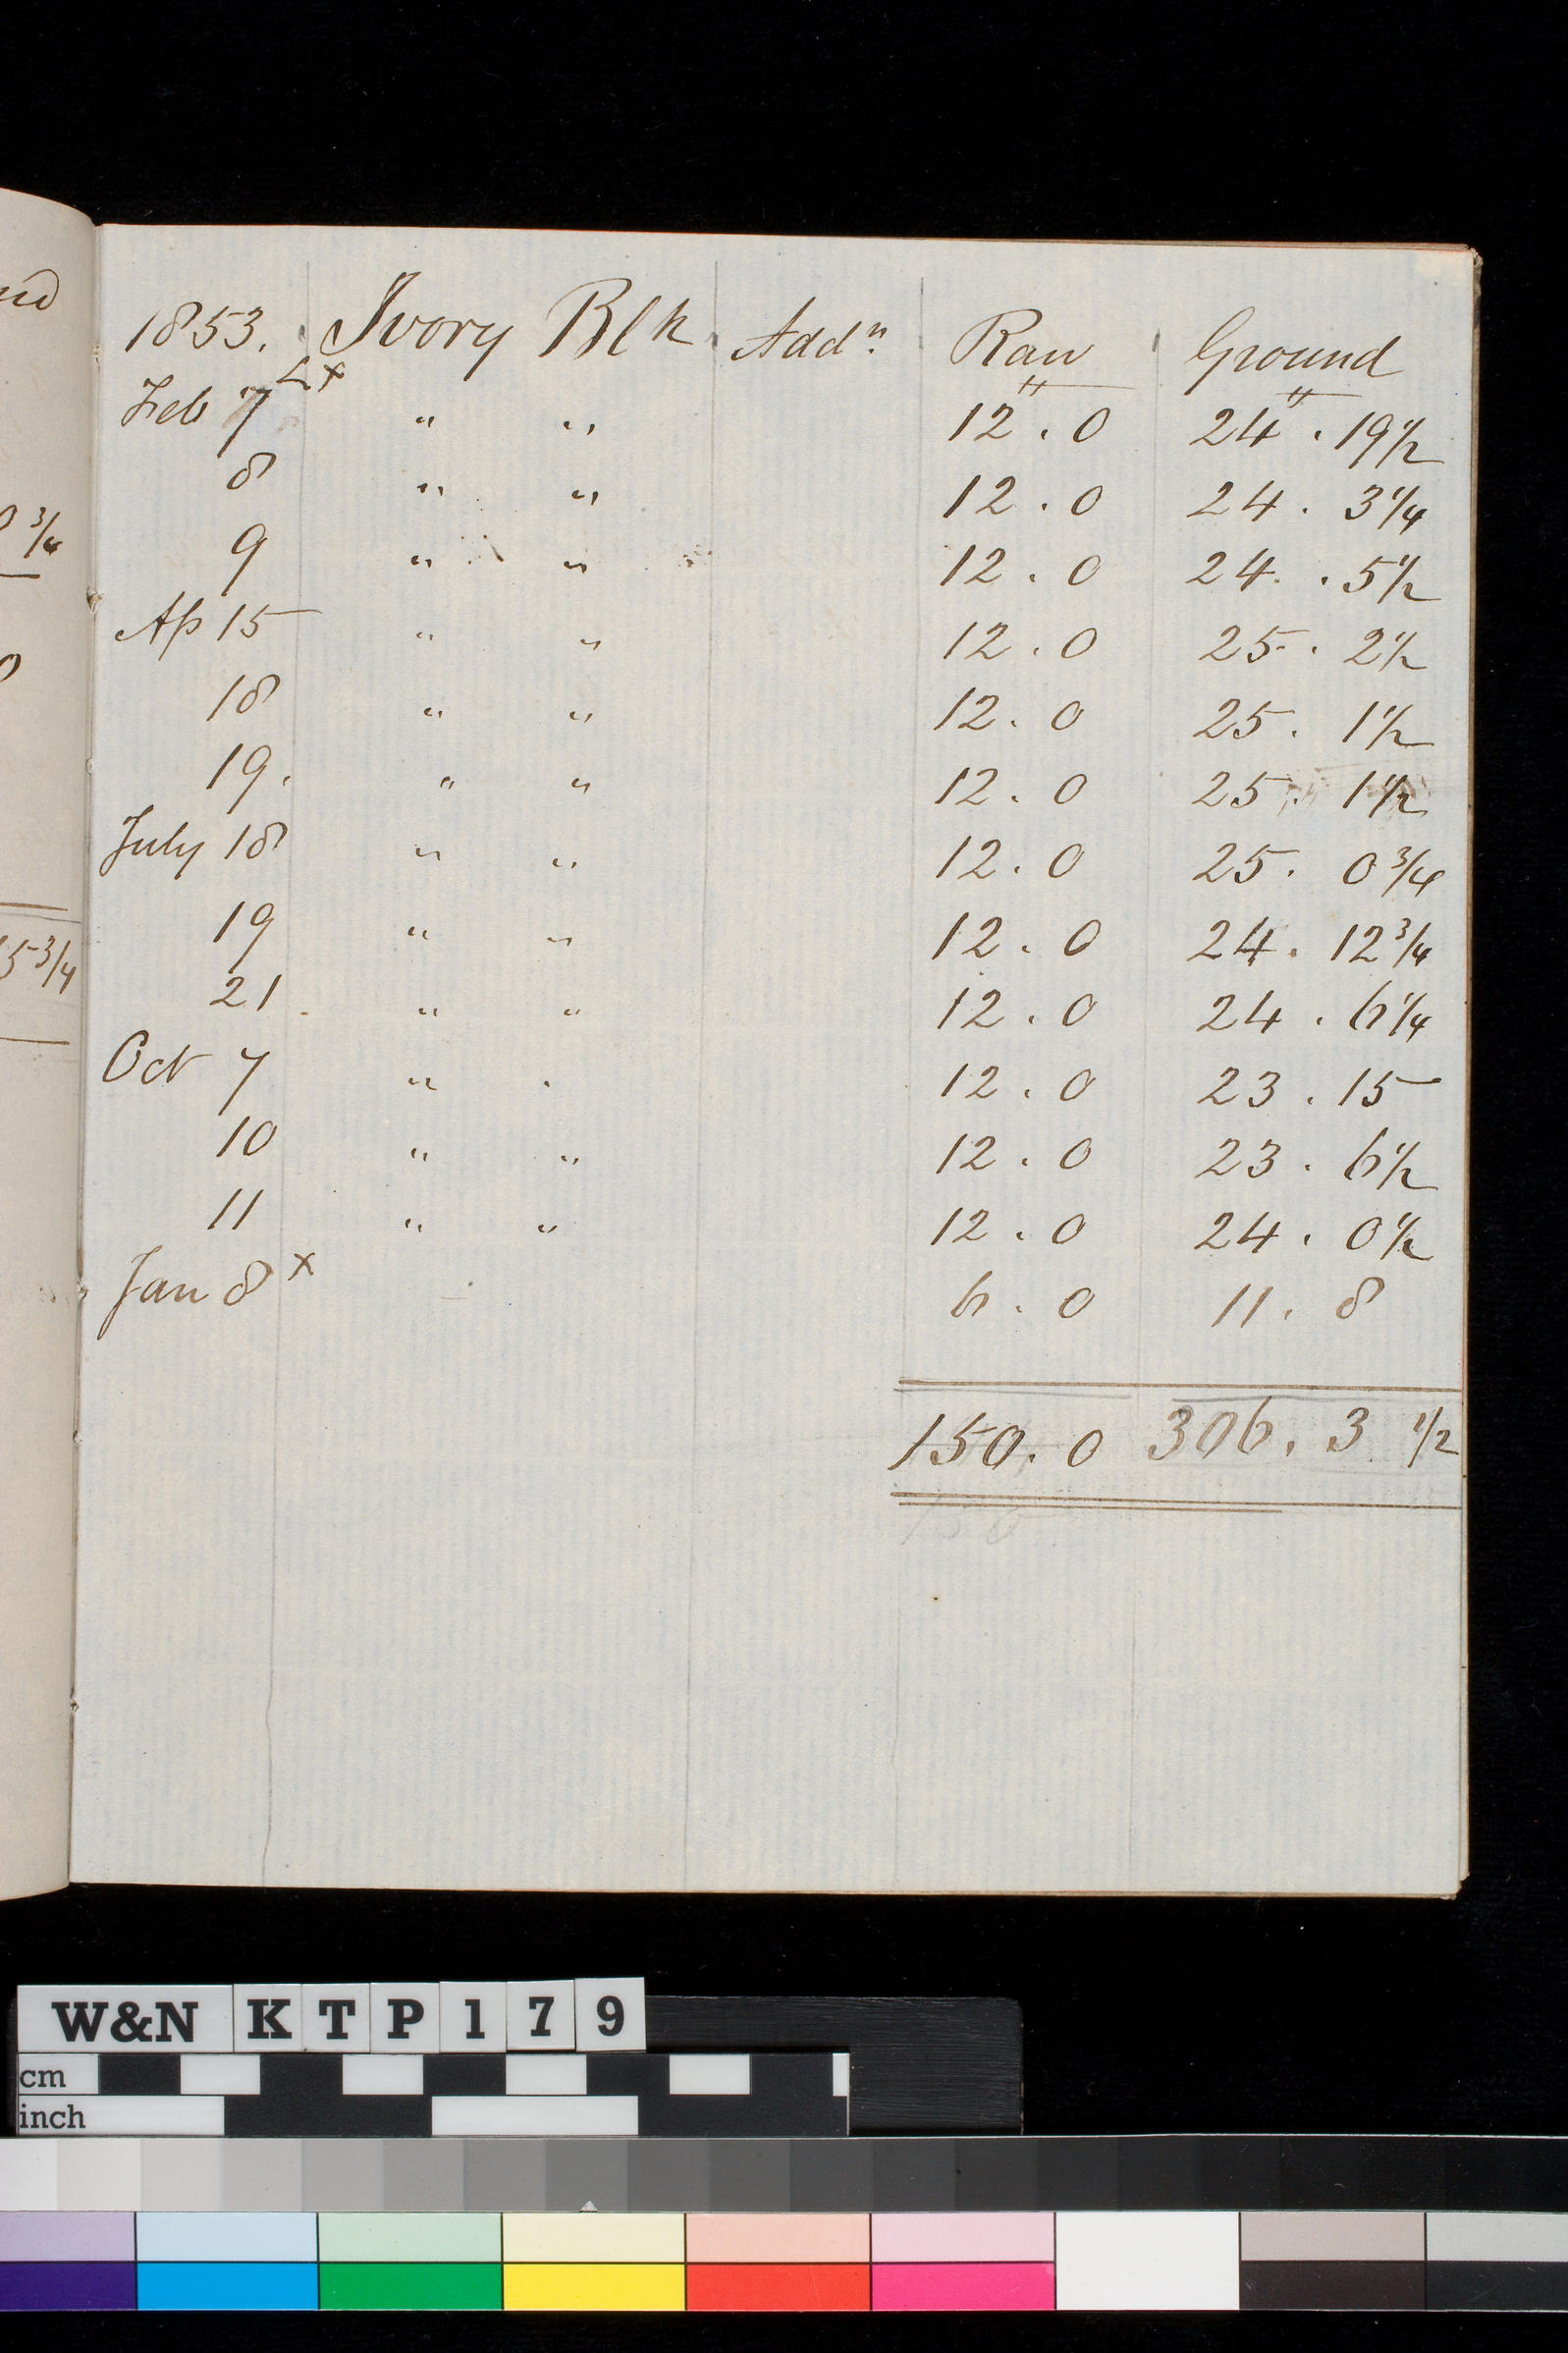 1853. Ivory Blk Addn. Raw Ground
Feb 7 Lx " " 12 . 0 24 . 19 1/2
8 " " 12 . 0 24 . 3 1/4
9 " " 12 . 0 24 . 5 1/2
Ap 15 " " 12 . 0 25 . 2 1/2
18 " " 12 . 0 25 . 1 1/2
19. " " 12 . 0 25 . 1 1/2
July 18 " " 12 . 0 25 . 0 3/4
19 " " 12 . 0 24 . 12 3/4
21 " " 12 . 0 24 . 6 1/4
Oct 7 " . 12 . 0 23 . 15
10 " " 12 . 0 23 . 6 1/2
11 " " 12 . 0 24 . 0 1/2
Jan 8 x 6 . 0 11 . 8
150 . 0 306 . 3 1/2
W&N KTP179
cm
inch